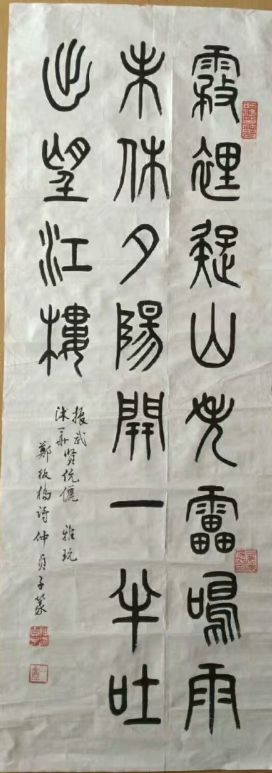 霧裡疑山失靁鳴雨
未休夕陽開一半吐
出望江樓
振武
沐華賢伉儷 雅玩
鄭板橋詩仲貞子篆